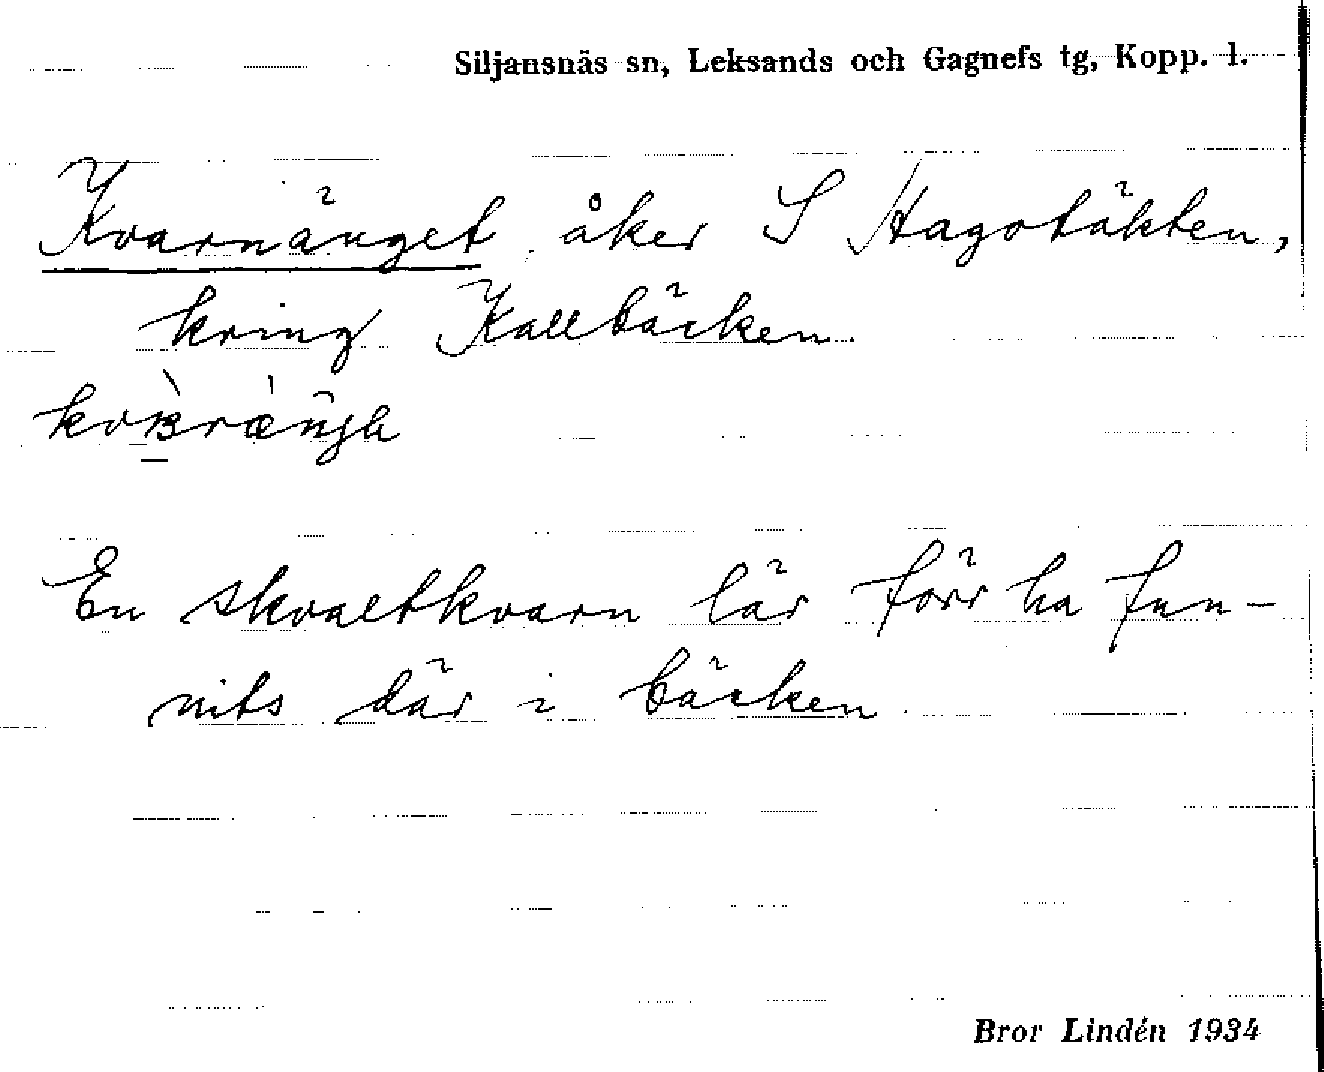 Siljansnäs sn, Leksands och Gagnefs tg, Kopp. l.
Kvarnänget åker S Hagotäkten,
kring Kallbäcken.
En skvaltkvarn lär förr ha fun-
nits där i bäcken.
Bror Lindén 1934